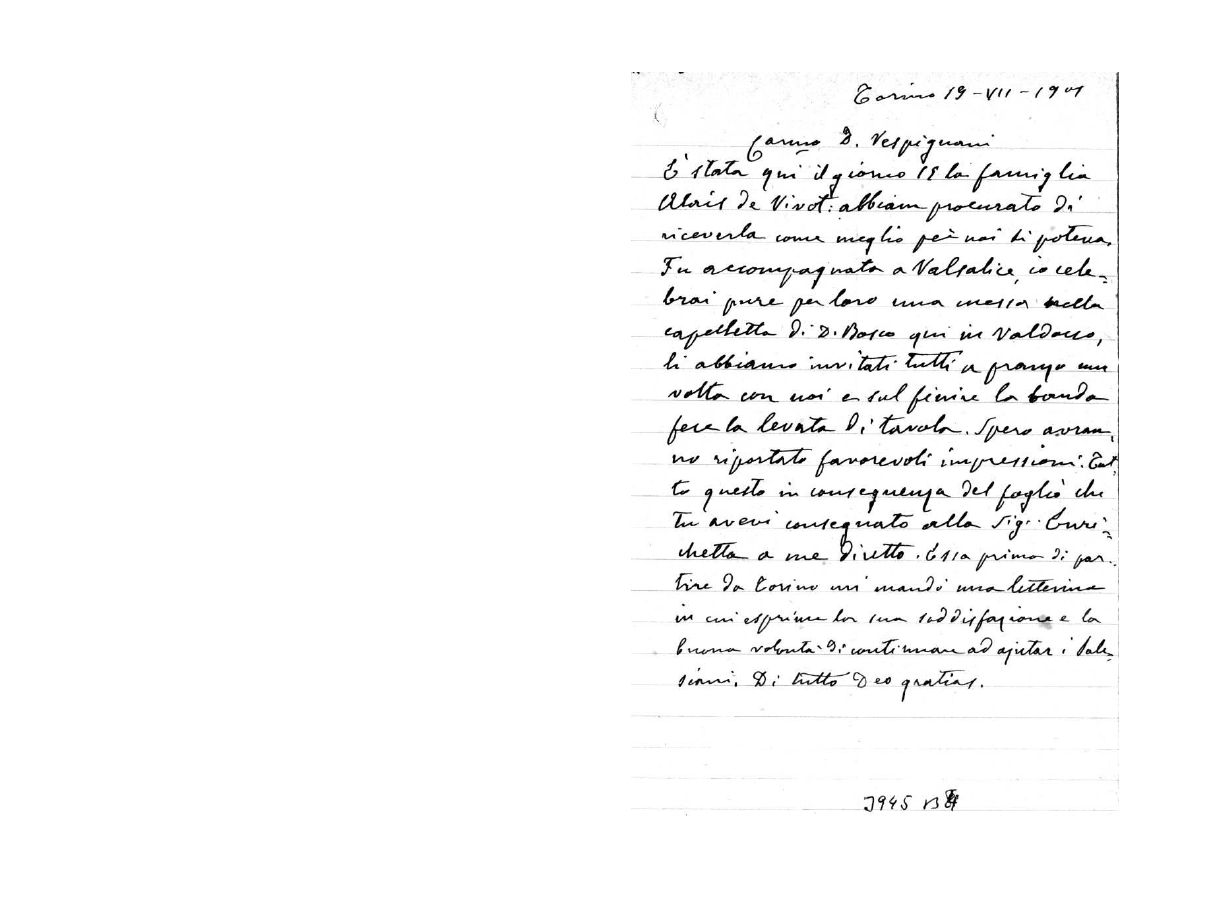 Torino 19-VII-1901
Carmo D. Vespignani
È stata qui il giorno la famiglia
de Vivot: abbiam procurato di
riceverla come meglio per noi si poteva.
Fu accompagnata a Valsalice, io cele=
brai pure per loro una messa nella
capelletta di D. Bosco qui in Valdocco,
li abbiamo invitati tutti a pranzo una
volta con noi e sul finire la banda
fece la levata di tavola. Spero avran,
no riportato favorevoli impressioni. Tut,
to questo in conseguenza del foglio che
tu avevi consegnato alla Sig.ᵃ Enri=
chetta a me diretto. Essa prima di par..
tire da Torino mi mandò una letterina
in cui esprime la sua soddisfazione e la
buona volontà di continuare ad ajutar i Sale,
siani. Di tutto Deo gratias.